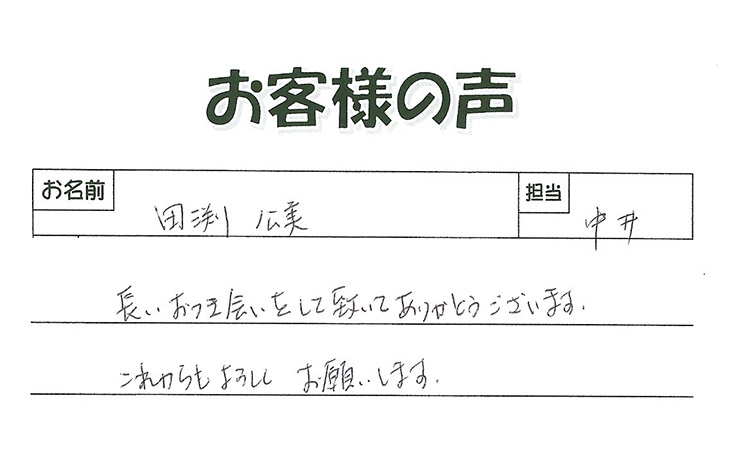 お客様の声
お名前
田渕 広美
担当
中井
長いおつき会いをして頂いてありがとうございます.
これからもよろしく お願いします.